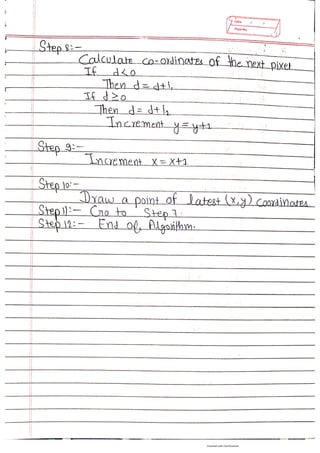 Step 8:-
Calculate co-ordinates of the next pixel
If d<0
Then d = d+I₁
If d≥0
Then d = d+I₂
Increment y = y+1
Step 9:-
Increment x = x+1
Step 10:-
Draw a point of latest (x,y) coordinates
Step 11:- Go to Step 7.
Step 12:- End of Algorithm.